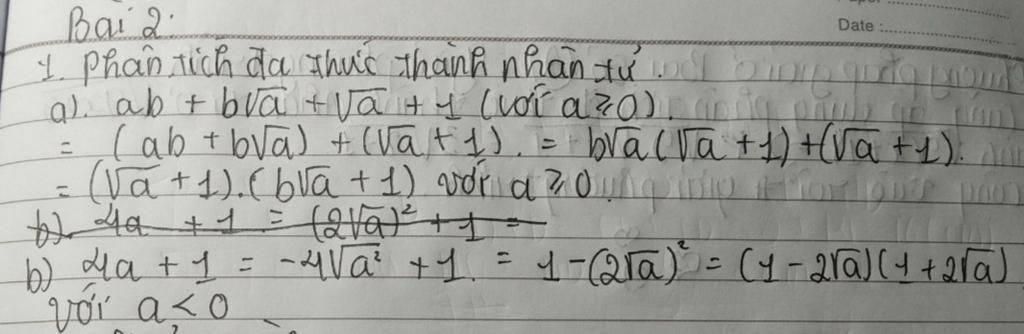 Date :
Bài 2:
1. Phân tích đa thức thành nhân tử.
a). ab + b√a + √a + 1 (với a ≥ 0).
= (ab + b√a) + (√a + 1). = b√a(√a + 1) + (√a + 1).
= (√a + 1).(b√a + 1) với a ≥ 0.
b). 4a + 1 = (2√a)² + 1 =
b) 4a + 1 = -4√a² + 1. = 1 - (2√a)² = (1 - 2√a)(1 + 2√a)
với a < 0